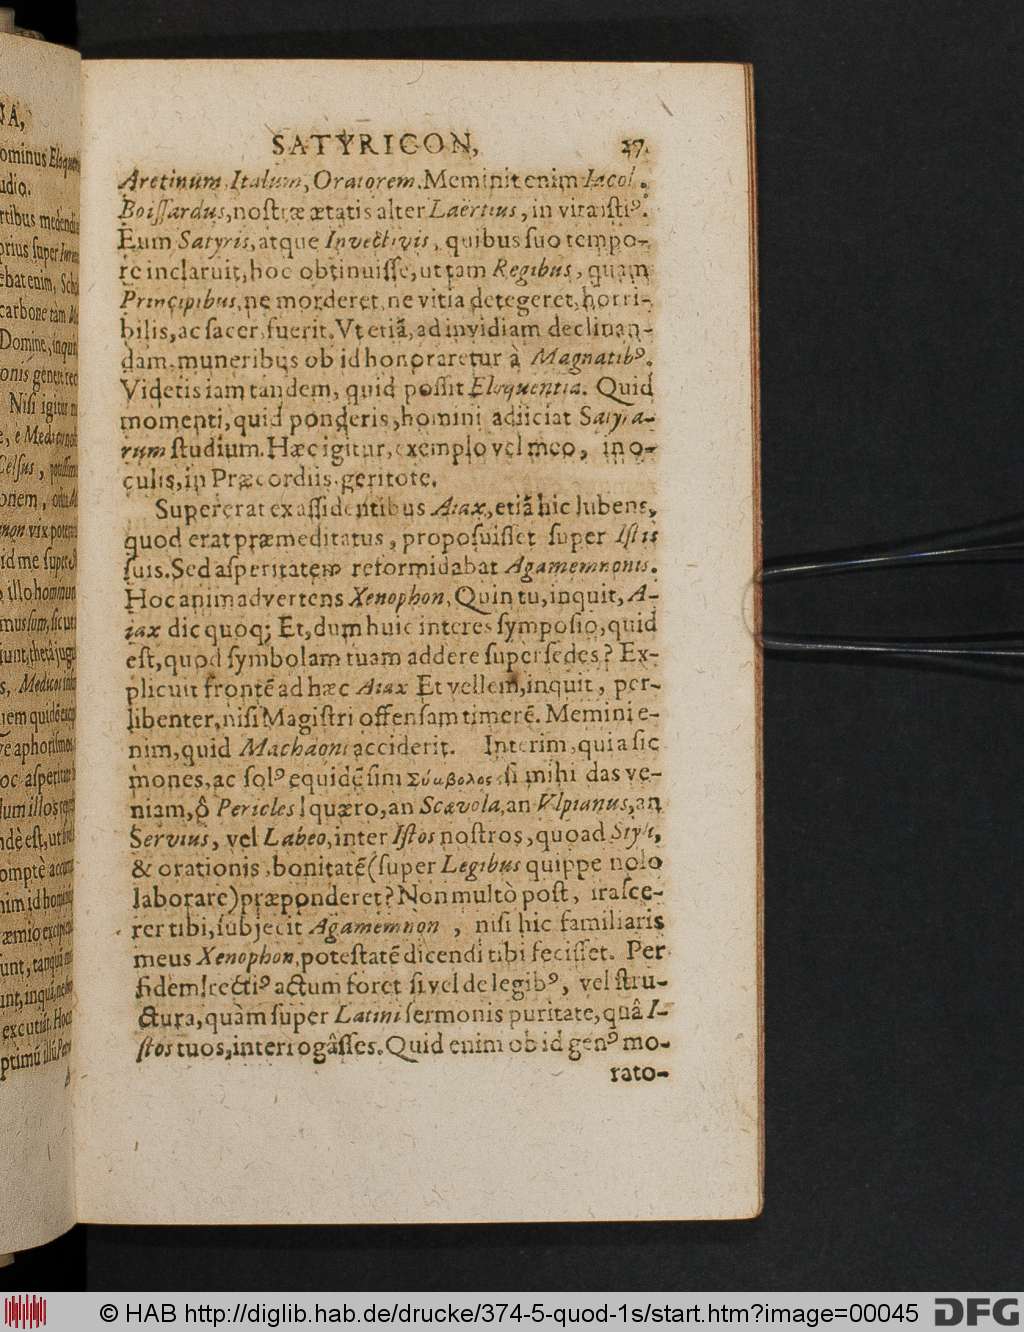 SATYRICON, 27.
Aretinum, Italum, Oratorem. Meminit enim Iacob.
Boiſſardus, noſtræ ætatis alter Laërtius, in vita iſtiꝰ.
Eum Satyris, atque Invectivis, quibus ſuo tempo-
re inclaruit, hoc obtinuiſſe, ut tam Regibus, quam
Principibus, ne morderet, ne vitia detegeret, horri-
bilis, ac ſacer, fuerit. Vt etiã, ad invidiam declinan-
dam, muneribus ob id honoraretur à Magnatibꝰ.
Videtis iam tandem, quid poſſit Eloquentia. Quid
momenti, quid ponderis, homini adiiciat Satyra-
rum ſtudium. Hæc igitur, exemplo vel meo, in o-
culis, in Præcordiis geritote.
Supererat ex aſſidentibus Aiax, etiã hic lubens,
quod erat præmeditatus, propoſuiſſet ſuper Iſtis
ſuis. Sed aſperitatem reformidabat Agamemnonis.
Hoc animadvertens Xenophon, Quin tu, inquit, A-
iax dic quoq; Et, dum huic interes ſympoſio, quid
eſt, quod ſymbolam tuam addere ſuperſedes? Ex-
plicuit frontẽ ad hæc Aiax Et vellem, inquit, per-
libenter, niſi Magiſtri offenſam timerẽ. Memini e-
nim, quid Machaoni acciderit. Interim, quia ſic
mones, ac ſolꝰ equidẽ ſim Σύμβολος ſi mihi das ve-
niam, ô Pericles! quæro, an Scævola, an Vlpianus, an
Servius, vel Labeo, inter Iſtos noſtros, quoad Styli,
& orationis, bonitatẽ (ſuper Legibus quippe nolo
laborare) præponderet? Non multò poſt, iraſce-
rer tibi, ſubjecit Agamemnon, niſi hic familiaris
meus Xenophon, poteſtatẽ dicendi tibi feciſſet. Per
fidem! rectiꝰ actum foret ſi vel de legibꝰ, vel ſtru-
ctura, quàm ſuper Latini ſermonis puritate, quâ I-
ſtos tuos, interrogâſſes. Quid enim ob id genꝰ mo-
rato-
© HAB http://diglib.hab.de/drucke/374-5-quod-1s/start.htm?image=00045
DFG